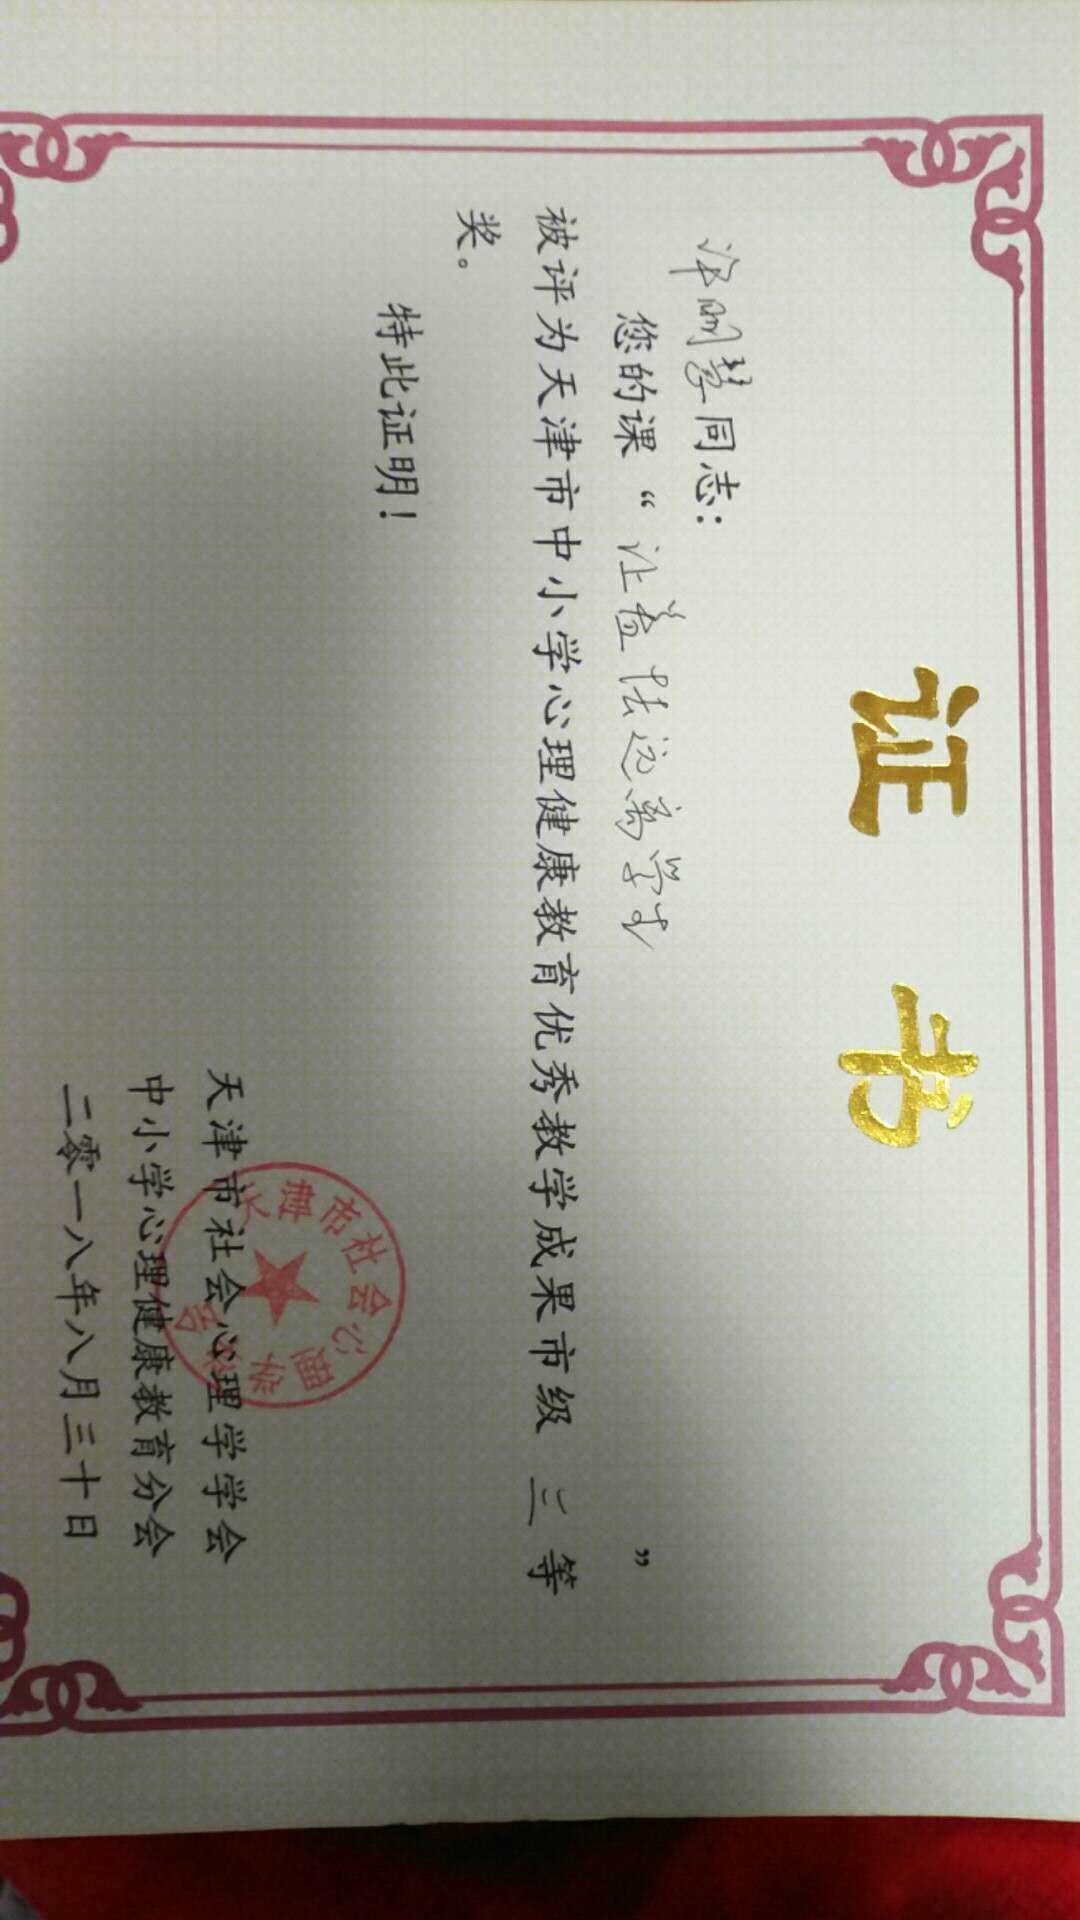 证书
同志：
您的课“让羞怯远离学生”
被评为天津市中小学心理健康教育优秀教学成果市级 三 等
奖。
特此证明！
天津市社会心理学学会
中小学心理健康教育分会
二零一八年八月三十日
天津市社会心理学会